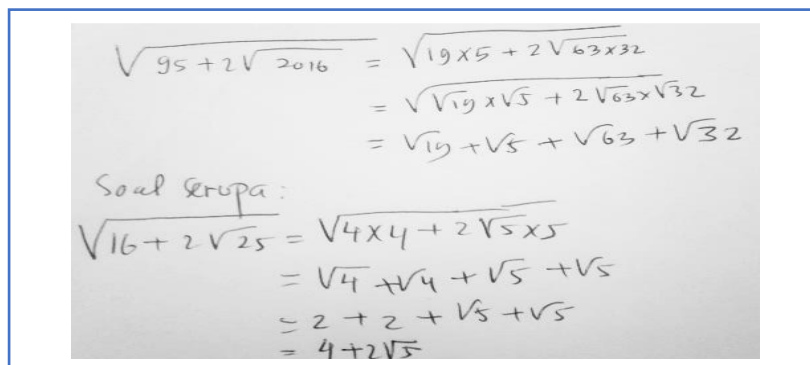 √(95 + 2√2016) = √(19×5 + 2√(63×32))
= √(√19 × √5 + 2√63 × √32)
= √19 + √5 + √63 + √32
Soal serupa :
√(16 + 2√25) = √(4×4 + 2√5×5)
= √4 + √4 + √5 + √5
= 2 + 2 + √5 + √5
= 4 + 2√5